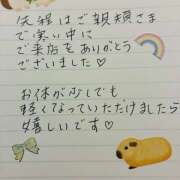 先程はご親頼さま
で寒い中に
ご来店をありがとう
ございました♡
お体が少しでも
軽くなっていただけましたら
嬉しいです♡